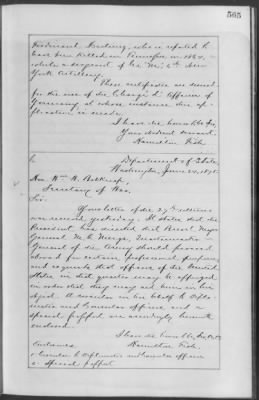 565
Ferdinand                     , who is reported to
have been killed in Tennessee in 1864,
while a sergeant of Co. "M," 5th New
York Artillery.
These certificates are desired
for the use of the Chargé d'Affaires of
Germany, at whose instance this ap-
plication is made.
I have the honor &c &c,
Your obedient servant,
Hamilton Fish.
Department of State,
Washington, June 24, 1875.
Hon. Wm. W. Belknap,
Secretary of War,
Sir:
Your letter of the 23d instant
was received yesterday. It states that the
President has directed that Brevet Major
General M. C. Meigs, Quartermaster
General of the Army should proceed
abroad for certain professional purposes,
and requests that officers of the United
States in that quarter may be apprized
in order that they may aid him in his
object. A circular in his behalf to Diplo-
matic and Consular officers, and a
special passport are accordingly herewith
enclosed.
I have the honor &c, &c, &c
Hamilton Fish.
Enclosures
Circular to Diplomatic and Consular officers
Special passport